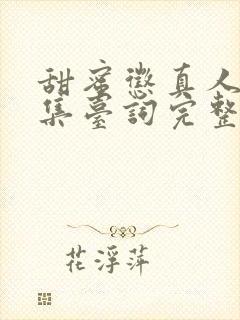 甜蜜懲真人
集臺詞完整
花浮萍